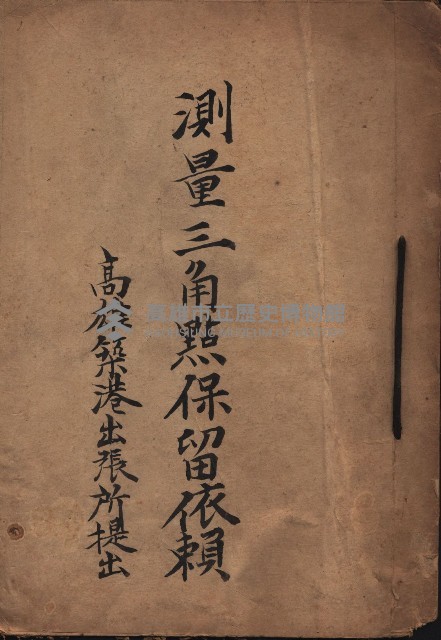 測量三角點保留依賴
高雄築港出張所提出
高雄市立歷史博物館
KAOHSIUNG MUSEUM OF HISTORY